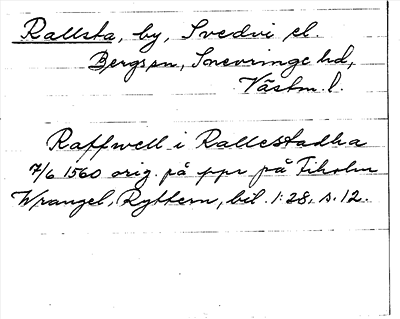 Rallsta, by, Svedvi el.
Bergs sn, Snevringe hd,
Västm. l.
Raffwell i Rallestadha
7/6 1560 orig. på ppr på Tiholm
Wrangel, Ryttern, bil. 1:28, s. 12.